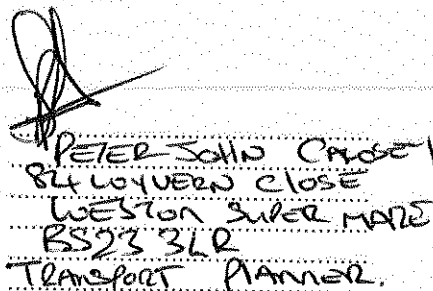 PETER JOHN
84 WYVERN CLOSE
WESTON SUPER MARE
BS23 3LR
TRANSPORT PLANNER.